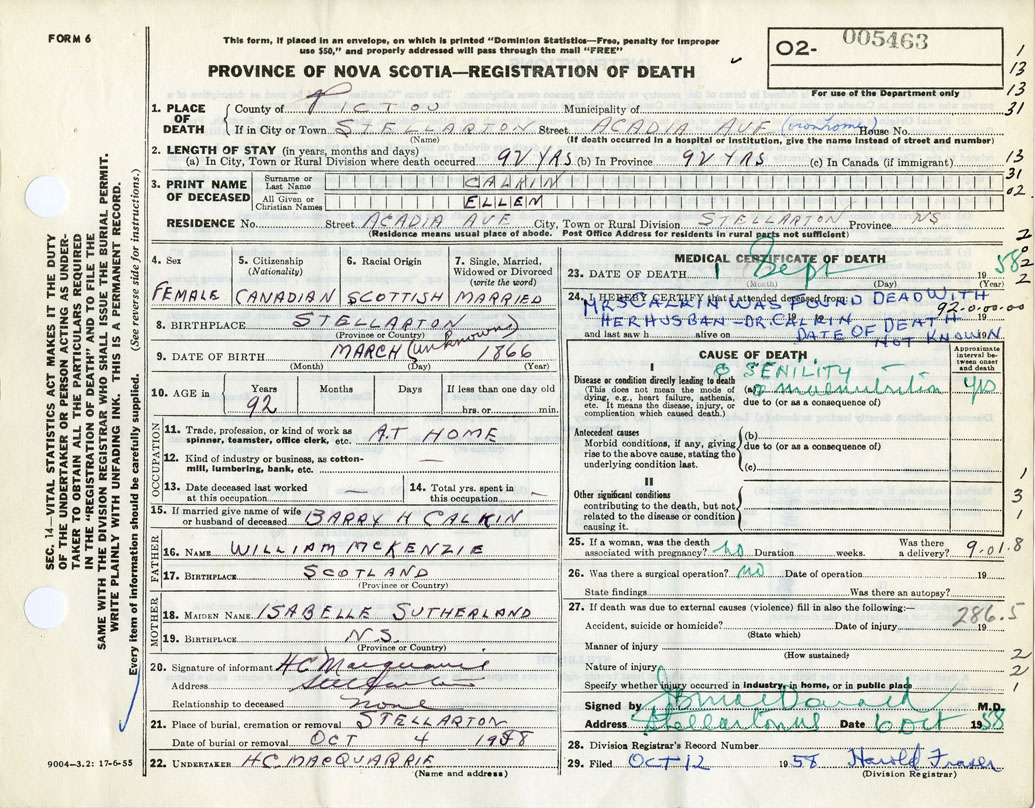 FORM 6
This form, if placed in an envelope, on which is printed "Dominion Statistics—Free, penalty for improper
use $50," and properly addressed will pass through the mail "FREE"
PROVINCE OF NOVA SCOTIA—REGISTRATION OF DEATH
O2- 005463
For use of the Department only
SEC. 14—VITAL STATISTICS ACT MAKES IT THE DUTY
OF THE UNDERTAKER OR PERSON ACTING AS UNDER-
TAKER TO OBTAIN ALL THE PARTICULARS REQUIRED
IN THE "REGISTRATION OF DEATH" AND TO FILE THE
SAME WITH THE DIVISION REGISTRAR WHO SHALL ISSUE THE BURIAL PERMIT.
WRITE PLAINLY WITH UNFADING INK. THIS IS A PERMANENT RECORD.
Every item of information should be carefully supplied. (See reverse side for instructions.)
1. PLACE OF DEATH
County of PICTOU Municipality of
If in City or Town STELLARTON Street ACADIA AVE (own home) House No.
(Name) (If death occurred in a hospital or institution, give the name instead of street and number)
2. LENGTH OF STAY (in years, months and days)
(a) In City, Town or Rural Division where death occurred 92 YRS (b) In Province 92 YRS (c) In Canada (if immigrant)
3. PRINT NAME OF DECEASED
Surname or Last Name CALKIN
All Given or Christian Names ELLEN
RESIDENCE No. Street ACADIA AVE City, Town or Rural Division STELLARTON Province NS
(Residence means usual place of abode. Post Office Address for residents in rural parts not sufficient)
4. Sex
FEMALE
5. Citizenship (Nationality)
CANADIAN
6. Racial Origin
SCOTTISH
7. Single, Married, Widowed or Divorced (write the word)
MARRIED
8. BIRTHPLACE STELLARTON
(Province or Country)
9. DATE OF BIRTH MARCH (unknown) 1866
(Month) (Day) (Year)
10. AGE in
Years Months Days If less than one day old
92 hrs. or min.
OCCUPATION
11. Trade, profession, or kind of work as
spinner, teamster, office clerk, etc. AT HOME
12. Kind of industry or business, as cotton-
mill, lumbering, bank, etc. —
13. Date deceased last worked
at this occupation —
14. Total yrs. spent in
this occupation —
15. If married give name of wife
or husband of deceased BARRY H CALKIN
FATHER
16. NAME WILLIAM MCKENZIE
17. BIRTHPLACE SCOTLAND
(Province or Country)
MOTHER
18. MAIDEN NAME ISABELLE SUTHERLAND
19. BIRTHPLACE N.S.
(Province or Country)
20. Signature of informant HC Macquarrie
Address Stellarton
Relationship to deceased none
21. Place of burial, cremation or removal STELLARTON
Date of burial or removal OCT 4 1958
22. UNDERTAKER H.C. MACQUARRIE
(Name and address)
9004—3.2: 17-6-55
MEDICAL CERTIFICATE OF DEATH
23. DATE OF DEATH 1 Sept 1958
(Month) (Day) (Year)
24. I HEREBY CERTIFY that I attended deceased from:
MRS CALKIN WAS FOUND DEAD WITH
HER HUSBAN - DR. CALKIN 92.0.00.00
and last saw h alive on 19
DATE OF DEATH
NOT KNOWN
CAUSE OF DEATH
Approximate interval between onset and death
I
Disease or condition directly leading to death
(This does not mean the mode of
dying, e.g., heart failure, asthenia,
etc. It means the disease, injury, or
complication which caused death.)
SENILITY
(a) malnutrition yrs
due to (or as a consequence of)
Antecedent causes
Morbid conditions, if any, giving
rise to the above cause, stating the
underlying condition last.
(b)
due to (or as a consequence of)
(c)
II
Other significant conditions
contributing to the death, but not
related to the disease or condition
causing it.
25. If a woman, was the death
associated with pregnancy? no Duration weeks. Was there
a delivery? 9.01.8
26. Was there a surgical operation? no Date of operation 19
State findings Was there an autopsy?
27. If death was due to external causes (violence) fill in also the following:—
286.5
Accident, suicide or homicide? Date of injury 19
(State which)
Manner of injury
(How sustained)
Nature of injury
Specify whether injury occurred in industry, in home, or in public place
Signed by M.D.
Address Stellarton NS Date 6 Oct 1958
28. Division Registrar's Record Number
29. Filed OCT 12 1958 Harold Fraser
(Division Registrar)
1
13
13
31
13
31
02
2
0
2
2
1
3
1
2
2
1